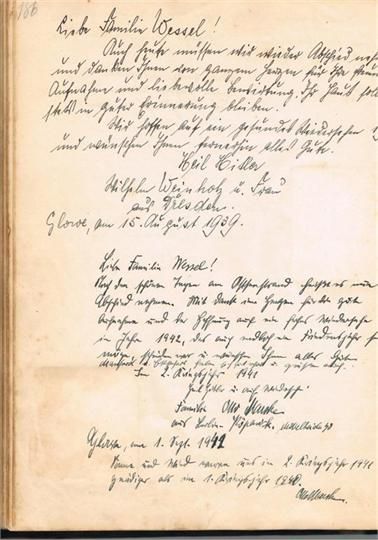 186
Liebe Familie Wessel!
Auch heute müssen wir wieder Abschied neh
und danken Ihnen von ganzem Herzen für Ihre
Aufnahme und liebevolle Bewirtung. Ihr Haus soll
stets in guter Erinnerung bleiben.
Wir hoffen auf ein gesundes Wiedersehen
und wünschen Ihnen fernerhin alles Gute.
Heil Hitler
Wilhelm Weinholz u. Frau
aus Dresden.
Glowe, am 15. August 1939.
Liebe Familie Wessel!
Nach den schönen Tagen am Ostseestrand heißt es nun
Abschied nehmen. Mit Dank im Herzen für die gute
Aufnahme und der Hoffnung auf ein frohes Wiedersehen
im Jahre 1942, das auch endlich ein Friedensjahr
und wünschen Ihnen alles Gute
Im 2. Kriegsjahr 1941
Heil Hitler u. auf Wiedersehn
Familie Otto
aus Berlin
Glowe, am 1. Sept. 1941
Sonne und Wind waren uns im 2. Kriegsjahr 1941
gnädiger als im 1. Kriegsjahr 1940.